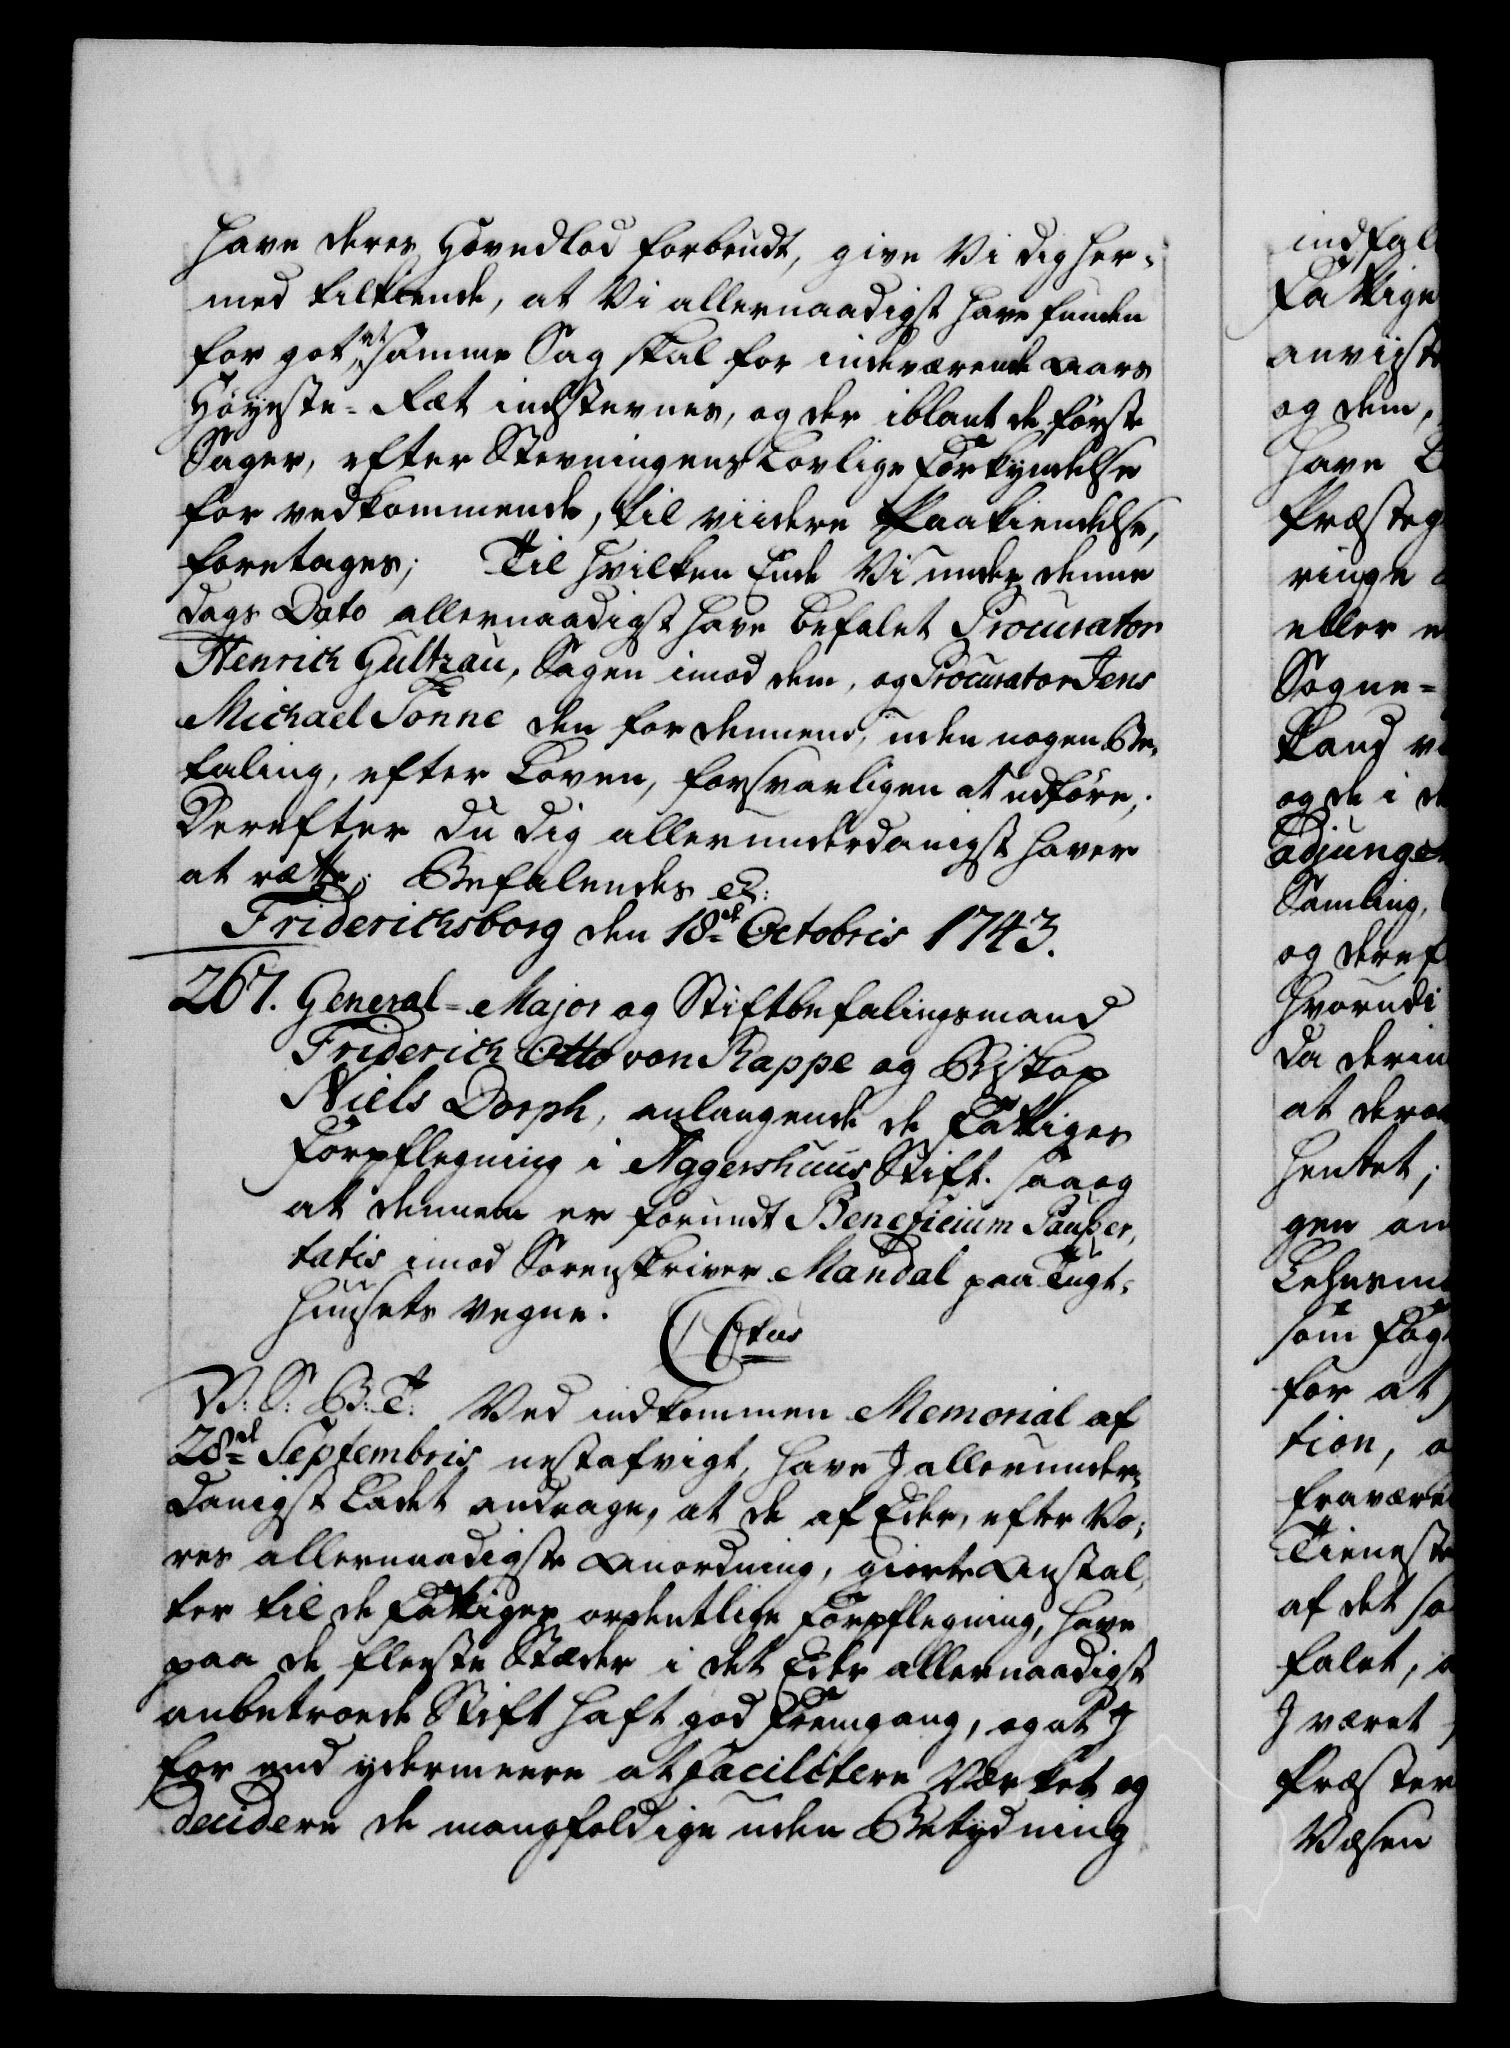 have deres Hovedlod forbrudt, give Vi dig her-
med tilkiende, at Vi allernaadigst have funden
for got, at samme Sag skal for indeværende Aars
Höyeste-Ræt indstevnes, og der iblant de förste
Sager, efter Stevningens Lovlige Forkyndelse
for vedkommende, til viidere Paakiendelse,
foretages; Til hvilken Ende Vi under denne
Dags Dato allernaadigst have befalet Procurator
Henrich Gultzau, Sagen imod dem, og Procurator Jens
Michael Tonne den for dennem, uden nogen Be-
taling, efter Loven, forsvarligen at udföre;
Derefter du dig allerunderdanigst haver
at rætte, Befalendes etc:
Friderichsborg den 18de Octobris 1743.
267. General-Major og Stiftbefalingsmand
Friderich Otto von Rappe og Biskop
Niels Dorph, anlangende de Fattiges
Forpflegning i Aggershuus Stift. saa og
at dennem er forundt Beneficium Pauper-
tatis imod Sorenskriver Mandal paa Tugt-
huusets vegne.
V: S: B: T: Ved indkommen Memorial af
28de Septembris nestafvigt, have I allerunder-
danigst Ladet andrage, at de af Eder, efter Vo-
res allernaadigste Anordning, giorte Anstal-
ter til de Fattiges ordentlige Forpflegning, have
paa de fleeste Stæder i det Eder allernaadigst
anbetroede Stift haft god Fremgang, og at I
for end ydermeere at facilitere Værket og
decidere de mangfoldige uden Betydning
indfal
Fattige
anviiste
og dem,
have
Præsteg
ringe
eller
Sogne-
Stand
og de i
adjunge
Samling,
og deref
hvorudi
da derin
at deraf
hentet;
gen an
Lehnsm
som Fog
for at
tion,
fravære
Tieneste
af det
falet,
I været
Præster
Væsen